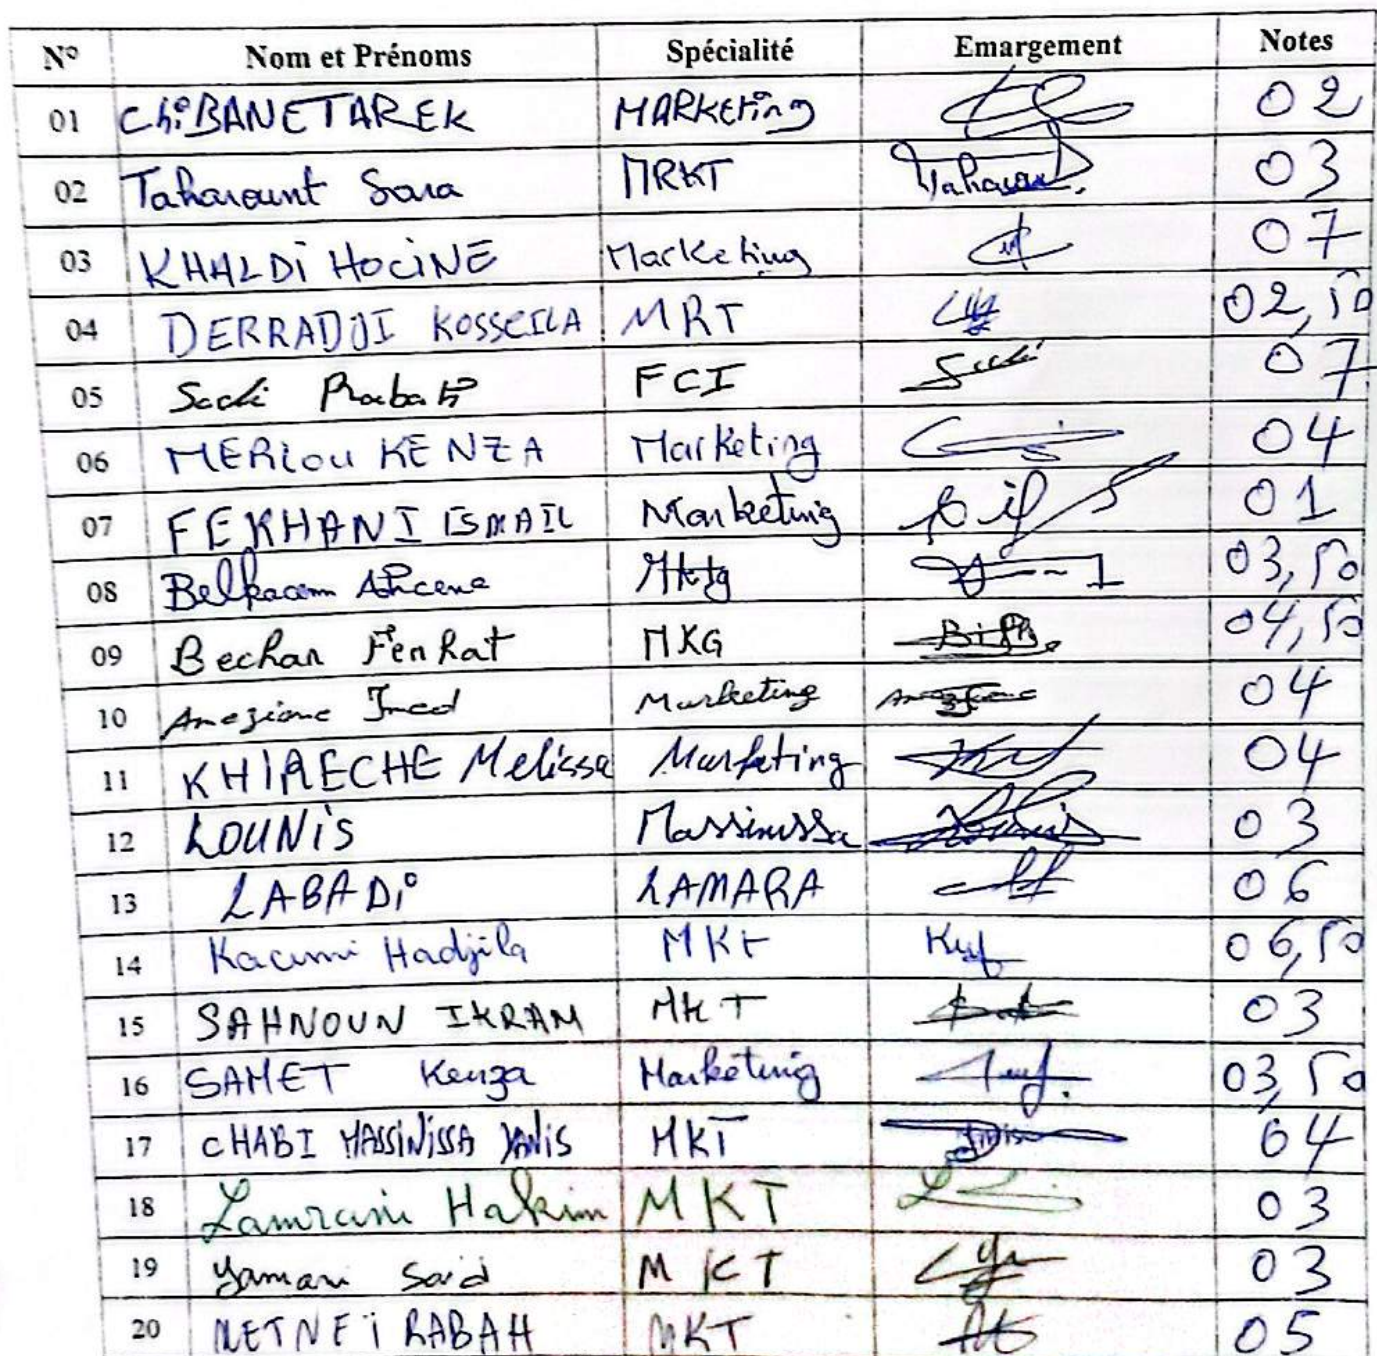 N° Nom et Prénoms Spécialité Emargement Notes
01 ChiBANE TAREK MARKeting 02
02 Taharount Sara MRKT Taharount 03
03 KHALDi HOCiNE Marketing 07
04 DERRADJI KOSSEILA MRT 02,50
05 Sadi Rabah FCI Sadi 07
06 MERLOU KENZA Marketing 04
07 FEKHANI ISMAIL Marketing 01
08 Belkacem Ahcene Mktg 03,50
09 Bechar Ferhat MKG 04,50
10 Ameziane Imed Marketing Ameziane 04
11 KHIRECHE Melissa Marketing 04
12 LOUNiS Massinissa Lounis 03
13 LABADi LAMARA 06
14 Kacimi Hadjila MKt 06,50
15 SAHNOUN IKRAM MKT 03
16 SAMET Kenza Marketing 03,50
17 CHABI MASSINISSA YANIS MKT 04
18 Lamrani Hakim MKT 03
19 Yamani Said MKT 03
20 NETNEÏ RABAH MKT 05